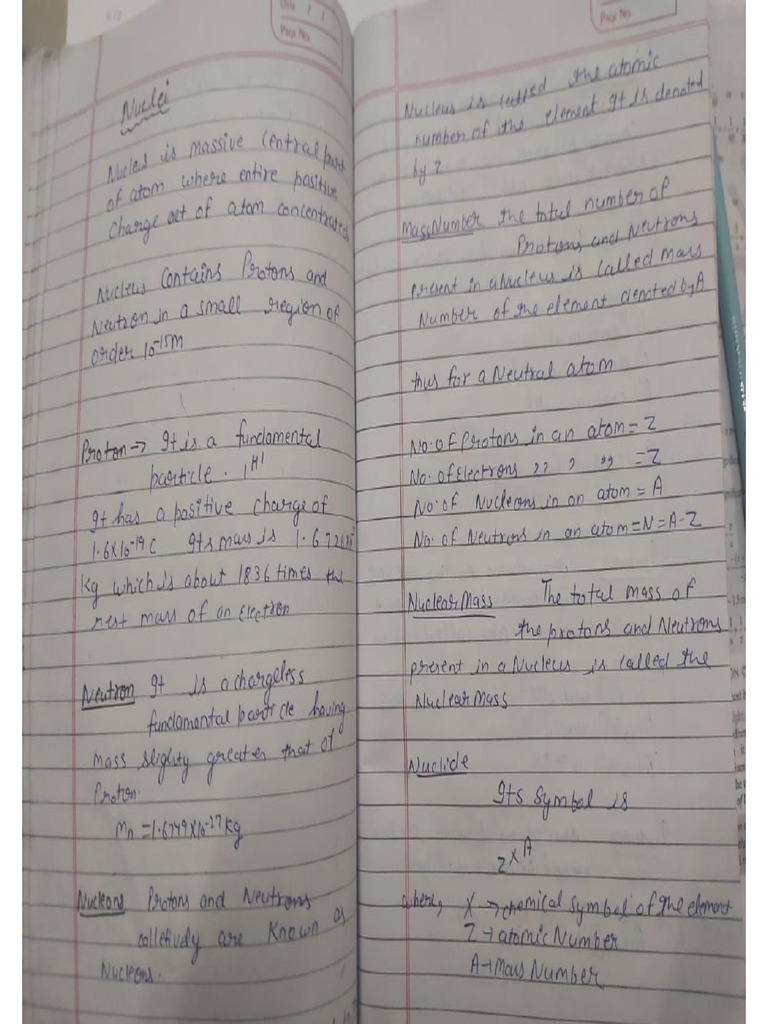 Page No.
Nuclei
Nucleus is massive Central part
of atom where entire positive
Charge act of atom concentrated
Nucleus Contains Protons and
Neutron in a small region of
order 10⁻¹⁵M
Proton → It is a fundamental
particle. ₁H¹
It has a positive charge of
1.6×10⁻¹⁹ C Its mass is
kg which is about 1836 times the
rest mass of an Electron
Neutron It is a chargeless
fundamental particle having
mass slighty greater that of
Proton.
Mn = 1.6749×10⁻²⁷ kg
Nucleons Protons and Neutrons
colletively are Known as
Nucleons.
Page No.
Nucleus is called the atomic
number of the element. It is denoted
by Z
Mass Number the total number of
Protons and Neutrons
Present in a Nucleus is Called Mass
Number of the element denoted by A
thus for a Neutral atom
No. of Protons in an atom = Z
No. of Electrons ,, , ,, = Z
No. of Nucleons in an atom = A
No. of Neutrons in an atom = N = A-Z
Nuclear Mass The total mass of
the protons and Neutrons
present in a Nucleus is called the
Nuclear Mass
Nuclide
Its Symbol is
zXᴬ
where, X → chemical symbol of the element
Z → atomic Number
A → Mass Number